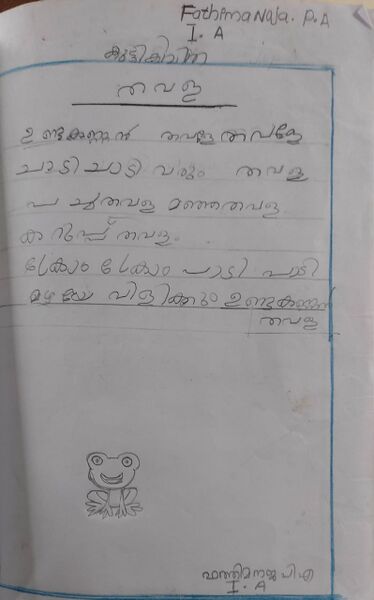 Fathima Naja. P.A
I. A
കുട്ടികവിത
തവള
ഉണ്ടകണ്ണൻ തവളേ തവളേ
ചാടി ചാടി വരും തവള
പച്ചതവള മഞ്ഞതവള
കറുപ്പ് തവള.
ക്രോം ക്രോം പാടി പാടി
മഴയെ വിളിക്കും ഉണ്ടകണ്ണൻ
തവള
ഫാത്തിമനജ പി എ
I. A